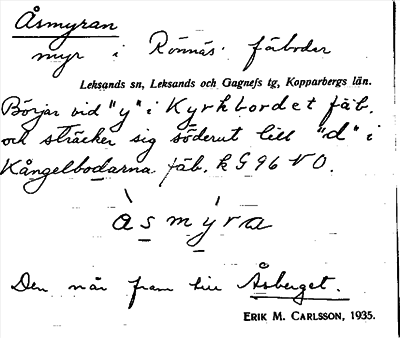 Åsmyran
myr i Rönnäs fäbodar
Leksands sn, Leksands och Gagnefs tg, Kopparbergs län.
Börjar vid "y" i Kyrkbordet fäb.
och sträcker sig söderut till "d" i
Kångelbodarna fäb. k G 96 N O.
àsmýra
Den når fram till Åsberget.
ERIK M. CARLSSON, 1935.